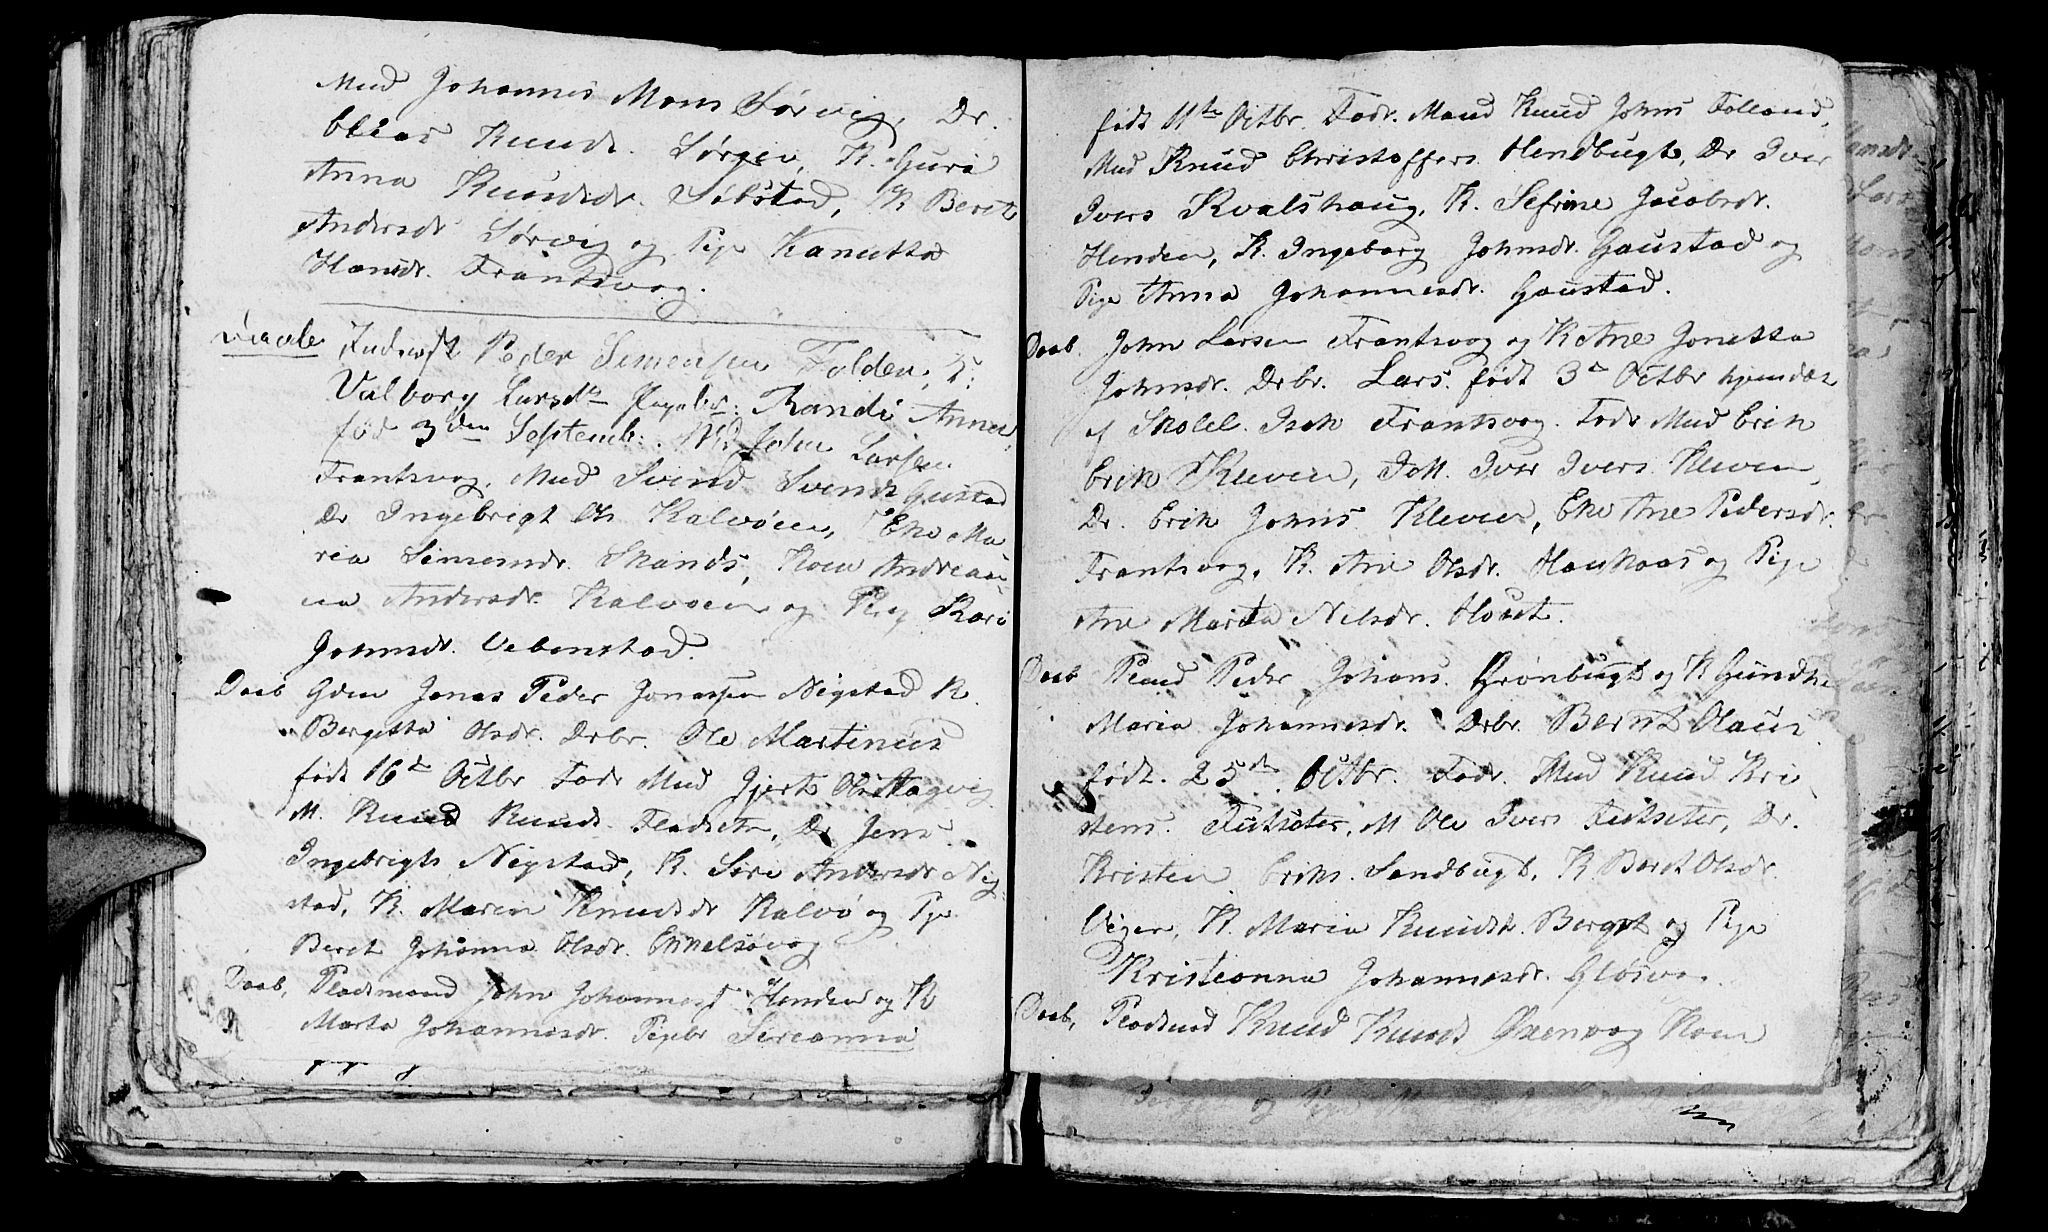 Mud Johannes Mons Sørvig, Dr.
Elias Knuds. Sørgen, K. Guri
Anna Knudsdr. Sibstad, K Berit
Andersdr Sørvig og Pige Kanutta
Hansdr. Frantsvog.
Inderst Peder Simensen Folden, K:
Valborg Larsdr Pigebr: Randi Anna
fød 3den Septemb: Md John Larsen
Frantsvog, Mud Svend Svends Gustad
Dr Ingebrigt Ols Kalvøen, Eke Ma
ria Simensdr. Skands, Kone Andrean
na Andersdr. Kalvøen og Pig Kari
Johnsdr. Vebenstad.
Daab Gdm Jonas Peder Jonassen Nigstad K.
Bergitta Olsdr. Drbr. Ole Martinus
født 16de Octbr Fadr Mud Gjert Ols Hagvig
M. Knud Knuds. Fladseter, Dr Jens
Ingebrigts Nigstad, K. Siri Andersdr Nig
stad, K. Maren Knudsdr Kalvø og Pige
Beret Johanna Olsdr. Enkelsøvog
Daab, Pladsmand John Johanness Henden og K
Marta Johannesdr. Pigebr Sirianna
født 11te Octbr. Fadr. Mand Knud Johns Folland,
Mud Knud Christoffers. Hendbugt, Dr Iver
Ivers Kvalshaug, K. Sefrine Jacobsdr.
Henden, K. Ingeborg Johnsdr. Gaustad og
Pige Anna Johannesdr. Gaustad.
Daab. John Larsen Frantsvog og K Ane Jonetta
Johnsdr. Drbr. Lars. født 3de Octbr hjemdøbt
af Skolel. Isak Frantsvog. Fadr Mud Erik
Erik Kleven, Iver Ivers Kleven,
Dr. Erik Johns Kleven, Eke Ane Pedersdr.
Frantsvog, K. Ane Olsdr. Haukaas og Pige
Ane Marta Nelsdr. Houst.
Daab Plmd Peder Johans. Grønbugt og K Gundhe
Maria Johannesdr. Drbr. Bernt Olaus
født. 25de Octbr. Fadr. Mud Knud Kri
stens. Futseter, M Ole Ivers Futseter, Dr.
Kristen Eriks. Sandbugt, K. Beret Olsdr.
K. Maria Knudsdr. Berget og Pige
Kristianna Johannesdr. Gløsvo.
Daab, Pladsmd Knud Knuds Øxenvog Kone